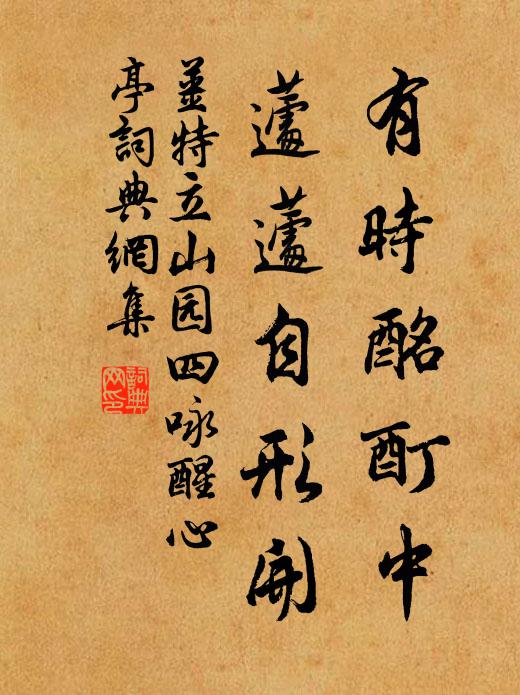 有時酩酊中
蘧蘧自形開
薑特立山园四咏醒心
亭詞典網集
詞典
网印